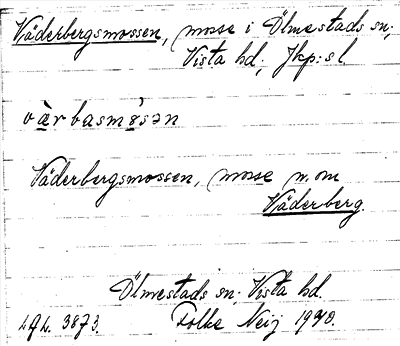 Väderbergsmossen, mosse i Ölmestads sn;
Vista hd; Jkp:s l.
vàrbasmǿsən
Väderbergsmossen, mosse n. om
Väderberg.
Ölmestads sn; Vista hd.
Folke Neij 1940.